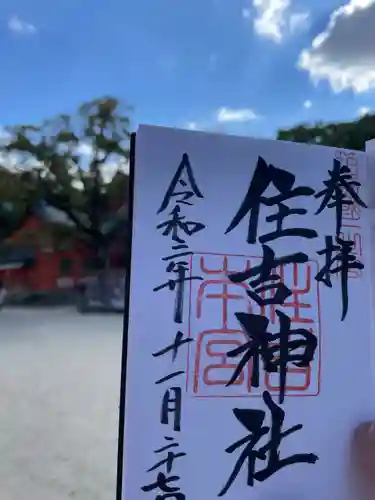 奉拝
住吉神社
住吉本宮
令和二年十一月二十